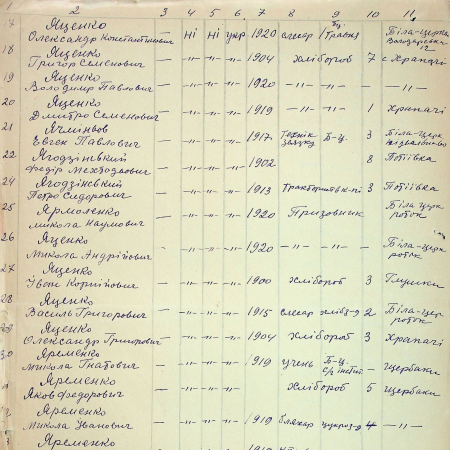 1 2 3 4 5 6 7 8 9 10 11
17 Яценко
Олександр Константінович — ні ні укр 1920 слюсар 1 травня — Біла-Церква
Володарська
12
18 Яценко
Григор Семенович — -"- -"- -"- 1904 Хлібороб 7 с Храпачі
19 Яценко
Володимир Павлович — -"- -"- -"- 1920 — -"- — — -"- —
20 Яценко
Дмитро Семенович — -"- -"- -"- 1919 — -"- — 1 Храпачі
21
Евген Павлович — -"- -"- -"- 1917 Технік Б-Ц. 3 Біла-Церк
22 Ягодзінський
Федір — -"- -"- -"- 1902 8 Потіївка
24 Ягодзінський
Петро Сидорович — -"- -"- -"- 1913 3 Потіївка
25 Ярмоленко
Микола Наумович — -"- -"- -"- 1920 Призовник Біла-Цер
роток
26 Яценко
Микола Андрійович — -"- -"- -"- 1920 — -"- — Біла-Церк
роток
27 Яценко
Івон Корнійович — -"- -"- -"- 1900 Хлібороб 3
28 Яценко
Василь Григорович — -"- -"- -"- 1915 слюсар 2 Біла-Цер
роток
29 Яценко
Олександр Григорович — -"- -"- -"- 1904 Хлібороб 3 Храпачі
30 Яременко
Микола Гнатович — -"- -"- -"- 1919 учень Б-Ц. с/г інстит — Щербаки
Яременко
Яков Федорович — -"- -"- -"- Хлібороб 5 Щербаки
Яременко
Микола Иванович — -"- -"- -"- 1919 бляхар цукроз-д 4 — -"- —
Яременко